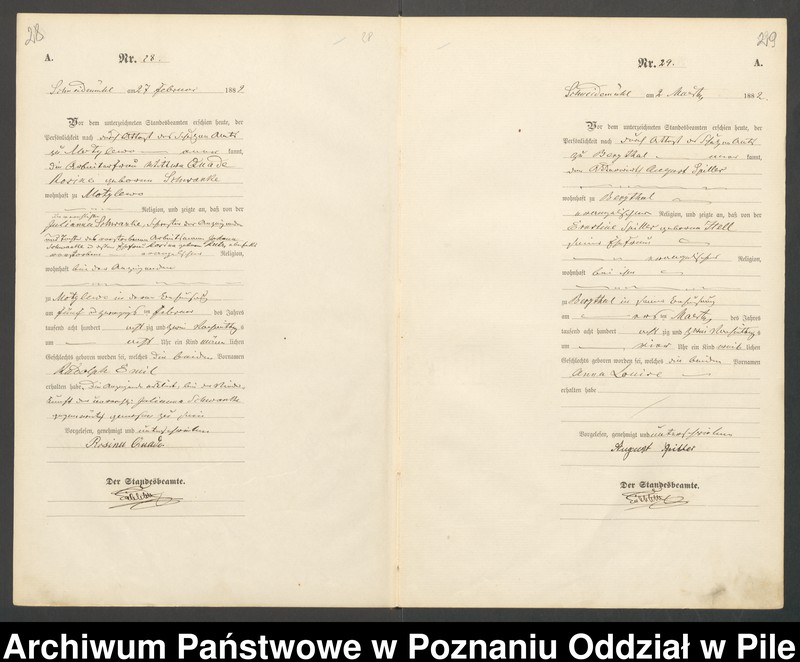 28
A.
Nr. 28.
Schneidemühl am 27 Februar 1882
Vor dem unterzeichneten Standesbeamten erschien heute, der
Persönlichkeit nach durch Attest des Schulzen Amts
zu Motylewo kannt,
die Arbeiterfrau Wittwe Quade
Rosine geborene Schwanke
wohnhaft zu Motylewo
Religion, und zeigte an, daß von der
Julianna Schwanke, Tochter der Anzeigenden
evangelischer Religion,
wohnhaft bei der Anzeigenden
zu Motylewo in deren Behausung
am fünf u zwanzigsten Februar des Jahres
tausend acht hundert acht zig und zwei Nachmittags
um acht Uhr ein Kind männlichen
Geschlechts geboren worden sei, welches die beiden Vornamen
Rudolph Emil
erhalten habe. Die Anzeigende erklärt, bei der Nieder
kunft der Julianna Schwanke
zugegen gewesen zu sein
Vorgelesen, genehmigt und unterschrieben
Rosina Quade
Der Standesbeamte.
28
249
Nr. 29.
A.
Schneidemühl am 2 Maerz 1882.
Vor dem unterzeichneten Standesbeamten erschien heute, der
Persönlichkeit nach durch Attest des Schulzen Amts
zu Bergthal kannt,
der August Spitter
wohnhaft zu Bergthal
evangelischer Religion, und zeigte an, daß von der
Ernestine Spitter geborene Stell
seiner Ehefrau
evangelischer Religion,
wohnhaft bei ihm
zu Bergthal in seiner Behausung
am ersten Maerz des Jahres
tausend acht hundert acht zig und zwei Nachmittags
um vier Uhr ein Kind weiblichen
Geschlechts geboren worden sei, welches die beiden Vornamen
Anna Louise
erhalten habe
Vorgelesen, genehmigt und unterschrieben
August Spitter
Der Standesbeamte.
Archiwum Państwowe w Poznaniu Oddział w Pile